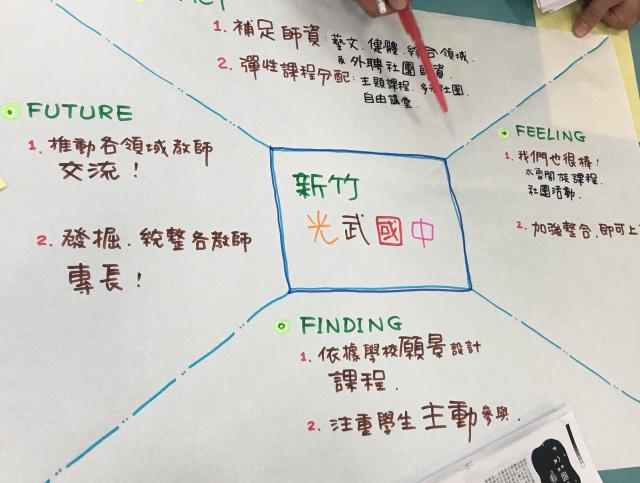 1. 補足師資：藝文、健體、綜合領域、
及外聘社團師資.
2. 彈性課程分配：主題課程、多元社團
自由講堂
FUTURE
1. 推動各領域教師
交流！
2. 發掘、統整各教師
專長！
FEELING
1. 我們也很棒！
課程、
社團活動.
2. 加強整合,即可上
新竹
光武國中
FINDING
1. 依據學校願景設計
課程.
2. 注重學生主動參與.